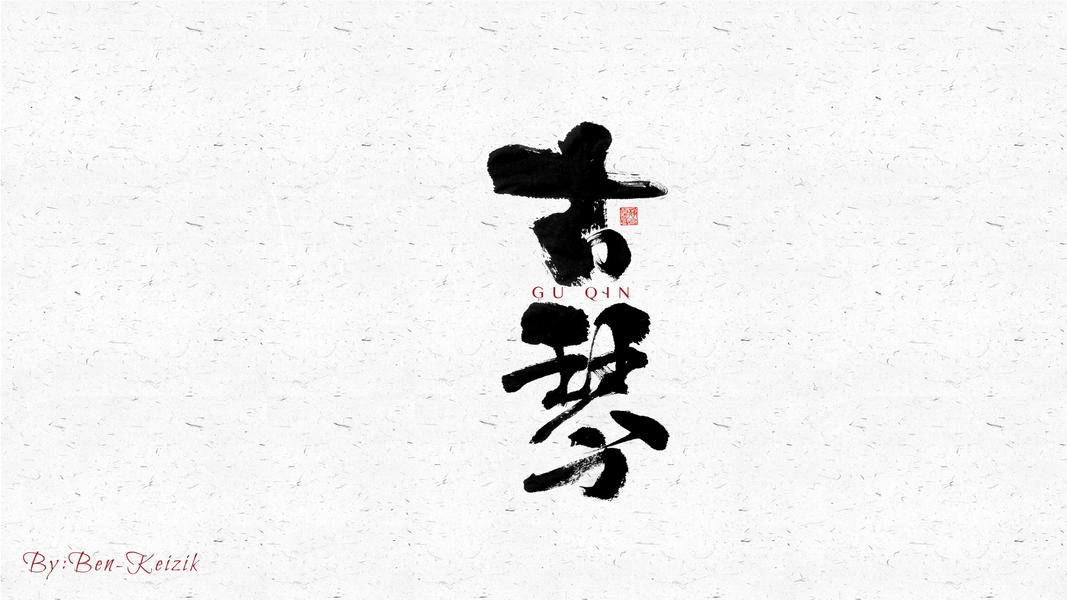 古
GU QIN
琴
By:Ben-Keizik